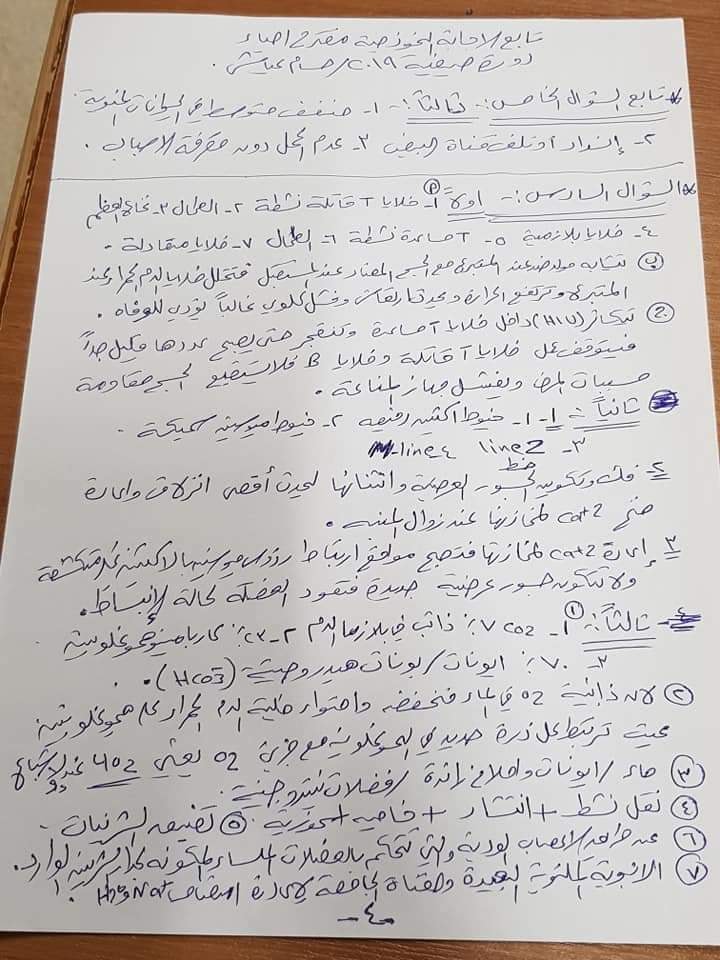 تابع الاجابة النموذجية مقترح احياء
دورة صيفية ٢٠١٩ / حسام عياش.
تابع السؤال الخامس :- ثالثاً :- ١- ضعف متوسط في الحيوانات المنوية
٢- إنسداد أو تلف قناة البيض ٣- عدم الحمل دون معرفة الاسباب.
السؤال السادس :- اولاً :- P ١- خلايا T قاتلة نشطة ٢- الطحال ٣- نخاع العظم
٤- خلايا بلازمية ٥- T مساعدة نشطة ٦- الطحال ٧- خلايا متعادلة.
ب) تشابه مولد ضد عند المتبرع مع الجسم المضاد عند المستقبل فتتحلل خلايا الدم الحمراء عند
المتبرع وترتفع الحرارة ويحدث ارتعاش وفشل كلوي غالباً يؤدي للوفاه.
ج) تتكاثر (HIV) داخل خلايا T مساعدة وتنفجر حتى يصبح عددها قليل جداً
فيتوقف عمل خلايا T قاتلة وخلايا B فلا يستطيع الجسم مقاومة
مسببات المرض ويفشل جهاز المناعة.
ثانياً :- ١- ١- خيوط اكتين رفيعه ٢- خيوط ميوسين سميكة.
٣- line Z ٤ M-line
٢- فك وتكوين الجسور العرضية وانثنائها ليحدث أقصى انزلاق واعادة
ضخ ca+2 لمخازنها عند زوال المنبه.
٣ إعادة ca+2 لمخازنها فتصبح مواقع ارتباط رؤوس ميوسين بالاكتين غير متكشفة
ولا تتكون جسور عرضية جديدة فتعود العضلة لحالة الإنبساط.
ثالثاً :- ① ١- CO2 ٧٪ ذائب في بلازما الدم ٢- ٢٣٪ كاربامينوهيموغلوبين
٣- ٧٠٪ ايونات / بونات هيدروجينية (HCO3-).
② لان ذائبية O2 في الماء منخفضه واحتواء خلية الدم الحمراء على هيموغلوبين
بحيث ترتبط كل ذرة حديد في الهيموغلوبين مع جزيء O2 يعني 4O2 عند الاشباع
③ ماء / ايونات واملاح زائدة / فضلات نيتروجينية.
④ نقل نشط + انتشار + خاصيه اسموزية ⑤ تضيق الشرينات.
⑥ عن طريق الاعصاب الودية والتي تتحكم بالعضلات الملساء المكونه لجدار الشرين الوارد.
⑦ الانبوبة الملتوية البعيدة والقناة الجامعة لإعادة امتصاص Na+ و H2O
-٤-